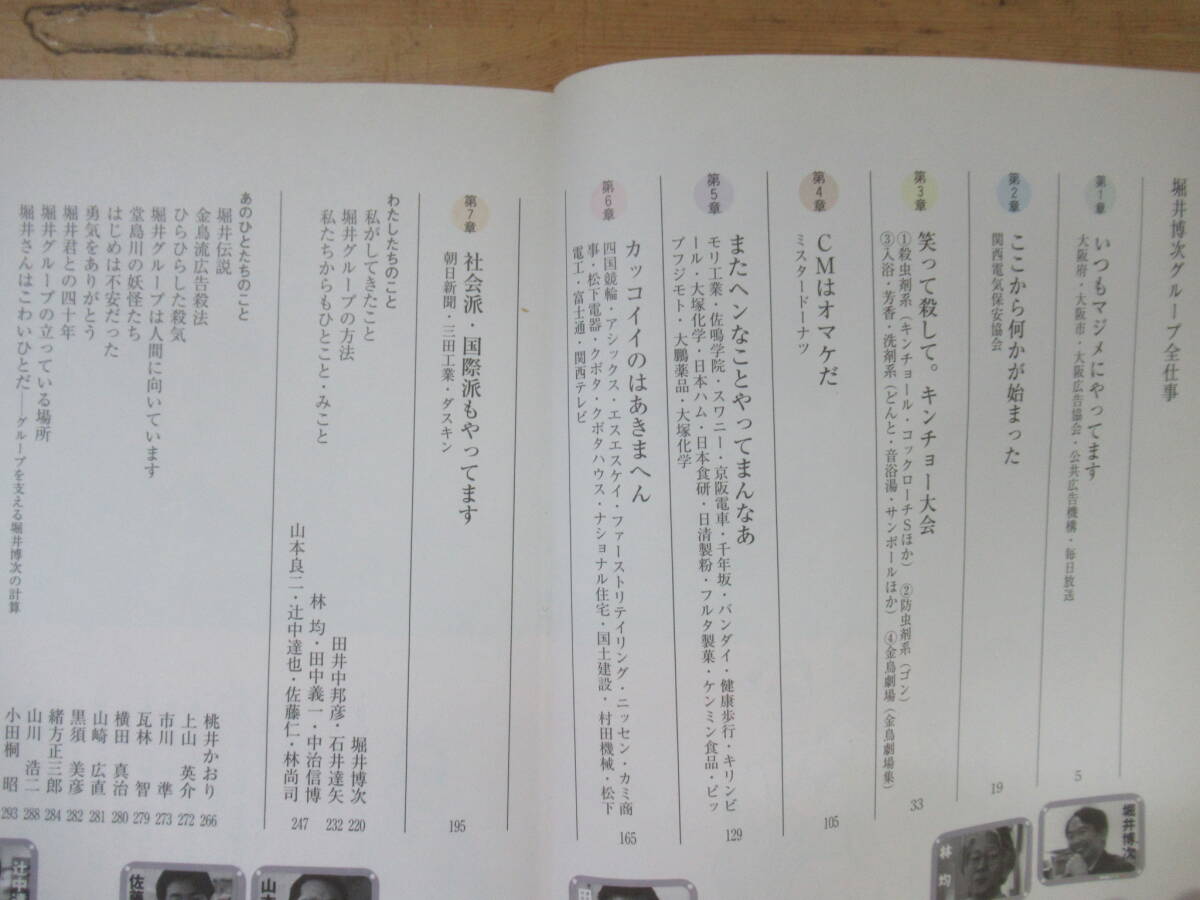 堀井博次グループ全仕事
第1章
いつもマジメにやってます
大阪府・大阪市・大阪広告協会・公共広告機構・毎日放送
5
第2章
ここから何かが始まった
関西電気保安協会
19
第3章
笑って殺して。キンチョー大会
①殺虫剤系（キンチョール・コックローチSほか） ②防虫剤系（ゴン）
③入浴・芳香・洗剤系（どんと・音浴湯・サンポールほか） ④金鳥劇場（金鳥劇場集）
33
第4章
CMはオマケだ
ミスタードーナツ
105
第5章
またヘンなことやってまんなあ
モリ工業・佐鳴学院・スワニー・京阪電車・千年坂・バンダイ・健康歩行・キリンビ
ール・大塚化学・日本ハム・日本食研・日清製粉・フルタ製菓・ケンミン食品・ピッ
プフジモト・大鵬薬品・大塚化学
129
第6章
カッコイイのはあきまへん
四国競輪・アシックス・エスエスケイ・ファーストリテイリング・ニッセン・カミ商
事・松下電器・クボタ・クボタハウス・ナショナル住宅・国土建設・村田機械・松下
電工・富士通・関西テレビ
165
第7章
社会派・国際派もやってます
朝日新聞・三田工業・ダスキン
195
わたしたちのこと
私がしてきたこと 堀井博次 220
堀井グループの方法 田井中邦彦・石井達矢 232
私たちからもひとこと・みこと 林 均・田中義一・中治信博
山本良二・辻中達也・佐藤仁・林尚司 247
あのひとたちのこと
堀井伝説 桃井かおり 266
金鳥流広告殺法 上山 英介 272
ひらひらした殺気 市川 準 273
堀井グループは人間に向いています 瓦林 智 279
堂島川の妖怪たち 横田 真治 280
はじめは不安だった 山崎 広直 281
勇気をありがとう 黒須 美彦 282
堀井君との四十年 緒方正三郎 284
堀井グループの立っている場所 山川 浩二 288
堀井さんはこわいひとだ――グループを支える堀井博次の計算 小田桐 昭 293
堀井博次
林 均
田
山本
佐藤
辻中達